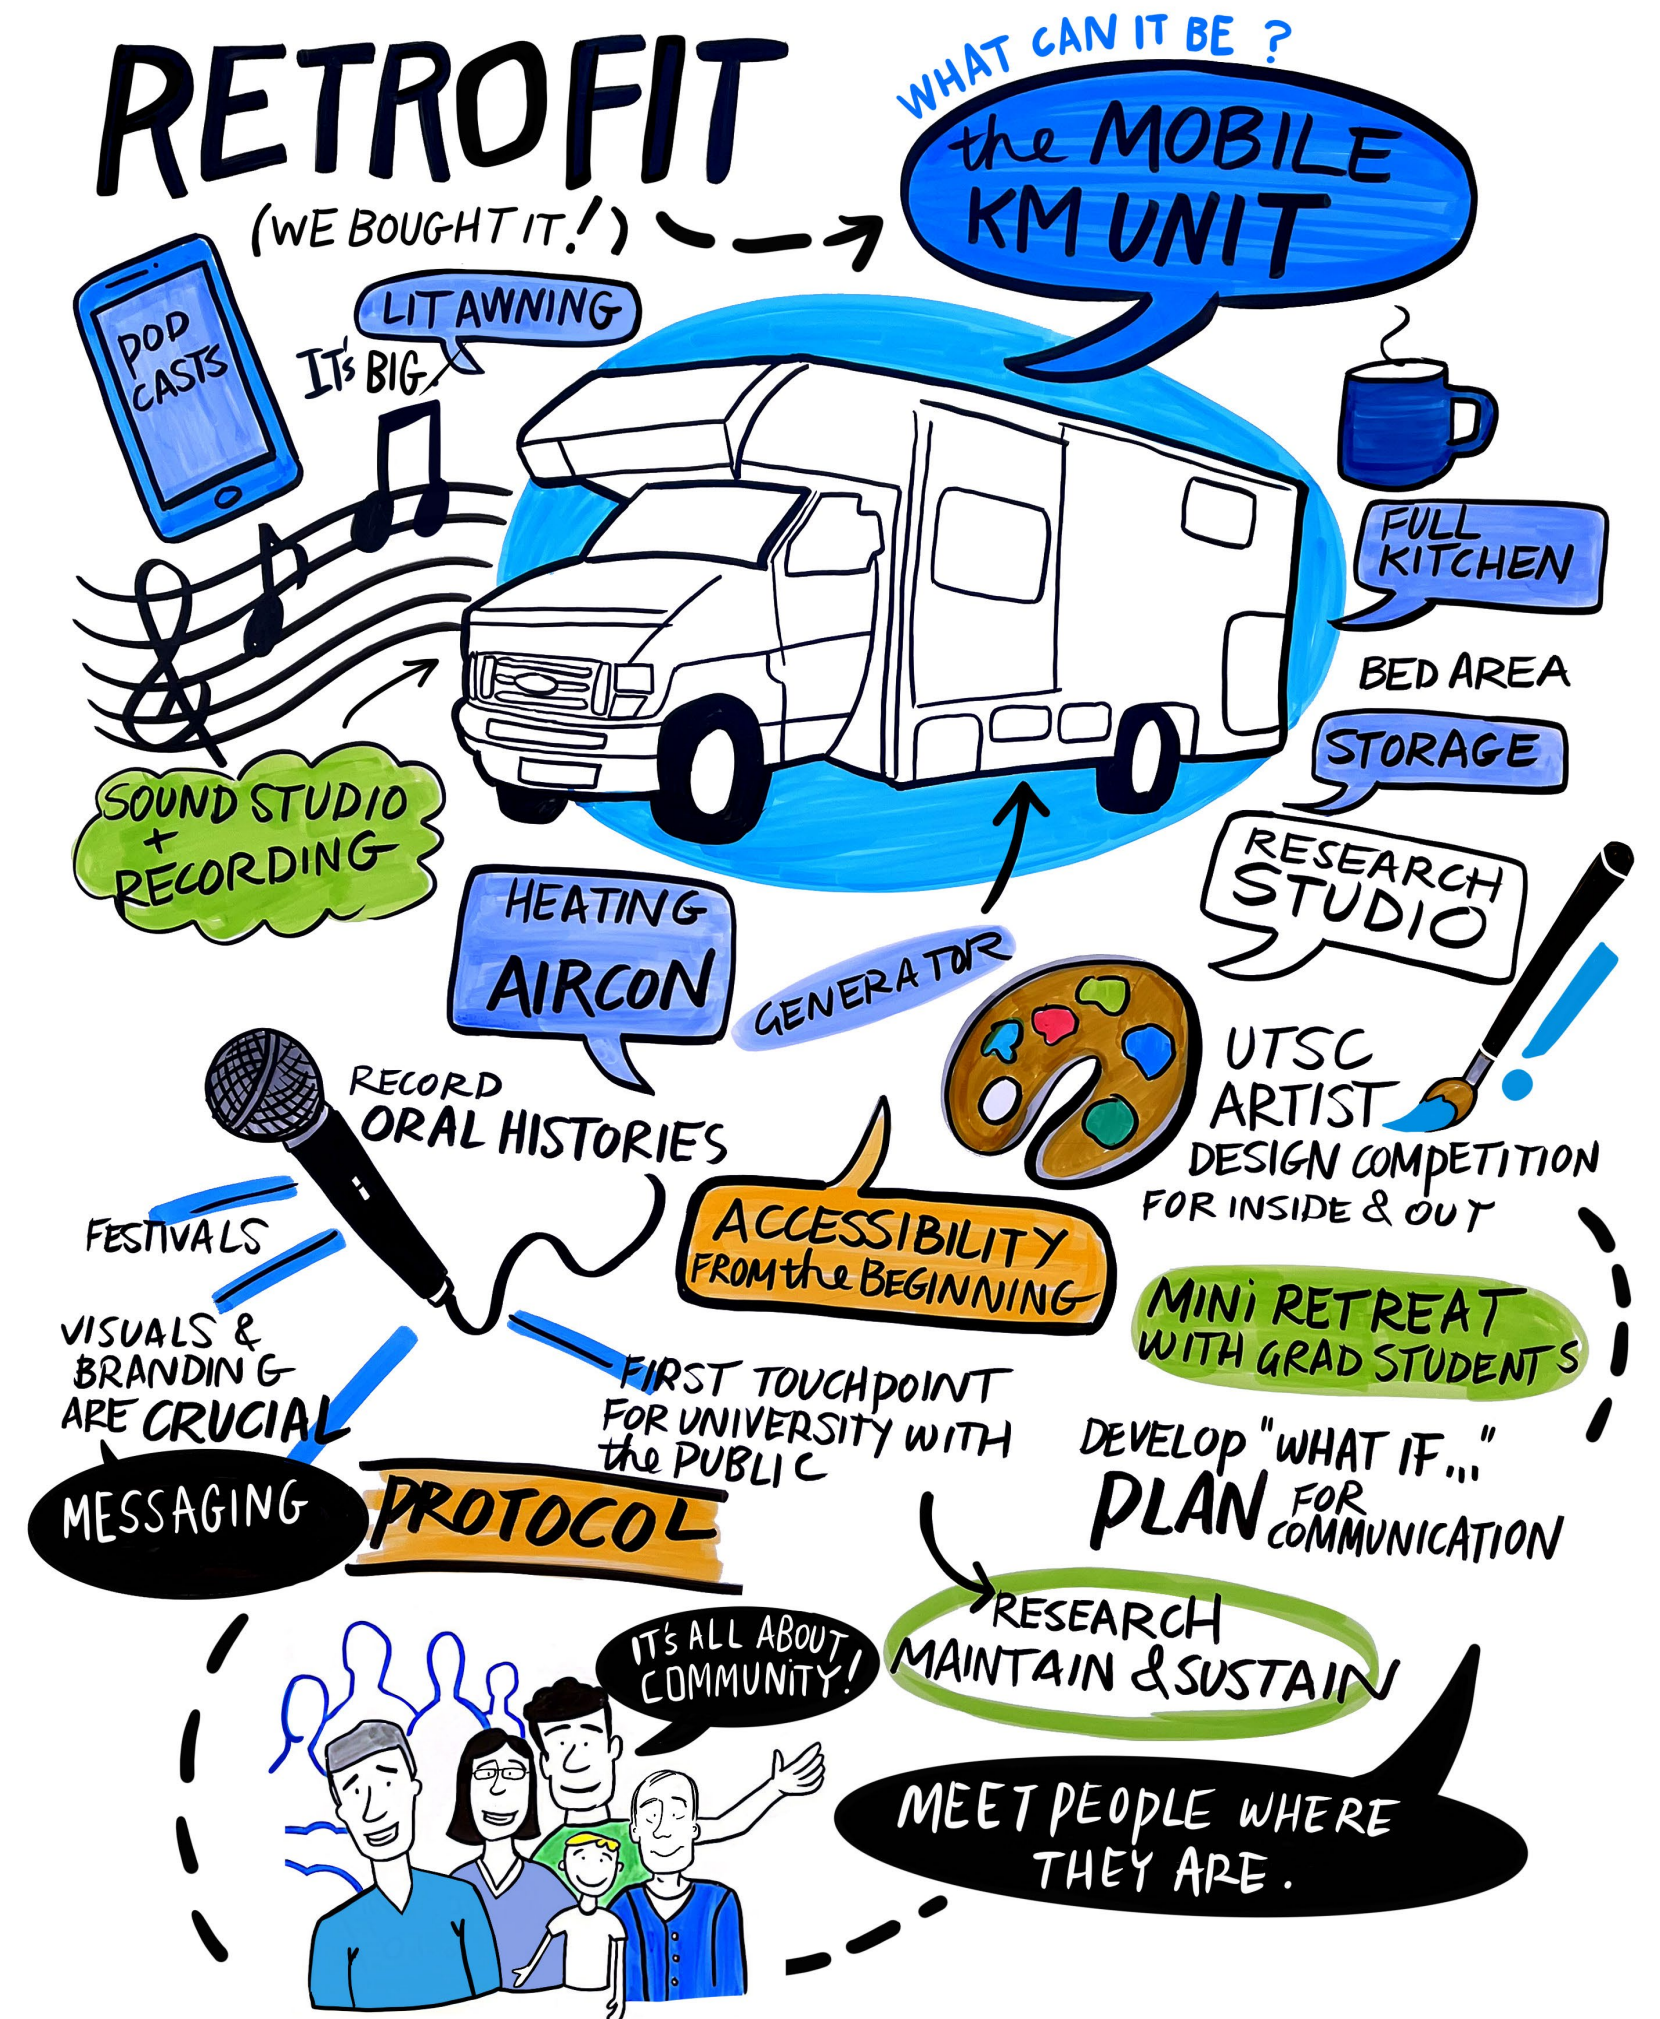 RETROFIT
(WE BOUGHT IT!)
WHAT CAN IT BE ?
the MOBILE
KM UNIT
POD
CASTS
LIT AWNING
IT'S BIG.
FULL
KITCHEN
BED AREA
STORAGE
RESEARCH
STUDIO
SOUND STUDIO
+
RECORDING
HEATING
AIRCON
GENERATOR
RECORD
ORAL HISTORIES
UTSC
ARTIST
DESIGN COMPETITION
FOR INSIDE & OUT
FESTIVALS
ACCESSIBILITY
FROM the BEGINNING
MINI RETREAT
WITH GRAD STUDENTS
VISUALS &
BRANDING
ARE CRUCIAL
FIRST TOUCHPOINT
FOR UNIVERSITY WITH
the PUBLIC
DEVELOP "WHAT IF..."
PLAN FOR
COMMUNICATION
MESSAGING
PROTOCOL
RESEARCH
MAINTAIN & SUSTAIN
IT'S ALL ABOUT
COMMUNITY!
MEET PEOPLE WHERE
THEY ARE.